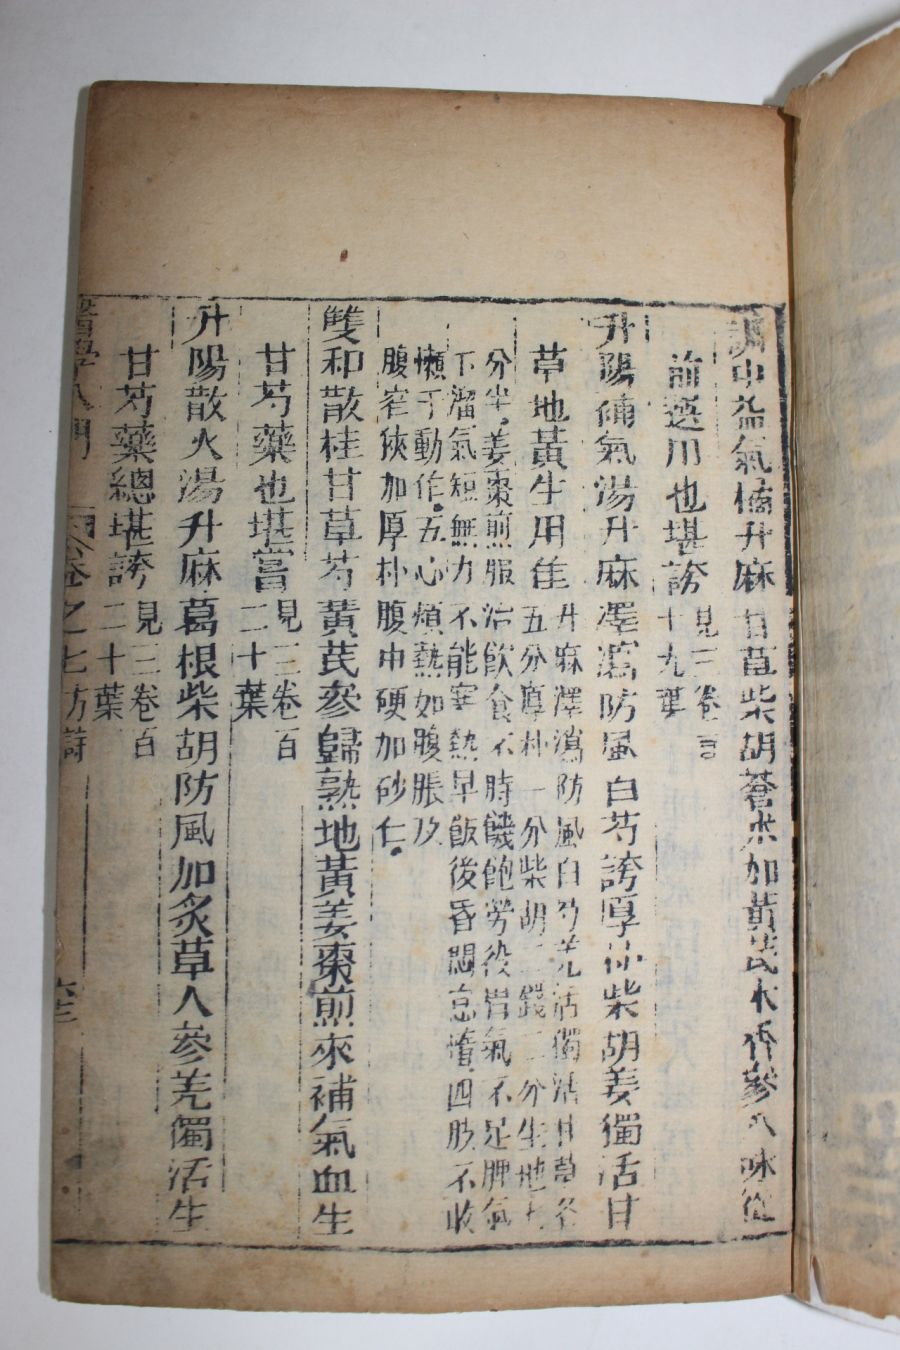 調中益氣橘升麻甘草柴胡蒼朮加黃芪木香參八味從
前選用也堪誇見三卷百
十九葉
升陽補氣湯升麻澤瀉防風白芍誇厚朴柴胡姜獨活甘
草地黃生用佳升麻澤瀉防風白芍羌活獨活甘草各
五分厚朴一分柴胡二錢二分生地七
分半姜棗煎服治飲食不時饑飽勞役胃氣不足脾氣
下溜氣短無力不能寒熱早飯後昏悶怠惰四肢不收
懶于動作五心煩熱如腹脹及
腹窄狹加厚朴腹中硬加砂仁
雙和散桂甘草芍黃芪參歸熟地黃姜棗煎來補氣血生
甘芍藥也堪嘗見三卷百
二十葉
升陽散火湯升麻葛根柴胡防風加炙草人參羌獨活生
甘芍藥總堪誇見三卷百
二十葉
醫學入門 卷之七 六十三